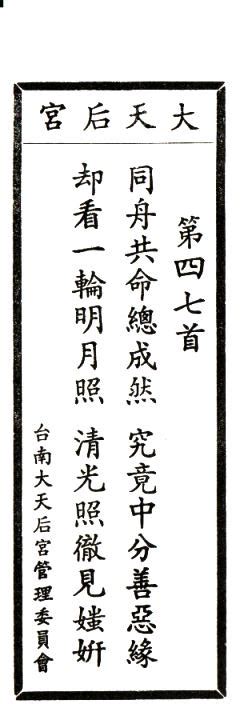 大天后宮
第四七首
同舟共命總成然　究竟中分善惡緣
却看一輪明月照　清光照徹見媸妍
台南大天后宮管理委員會